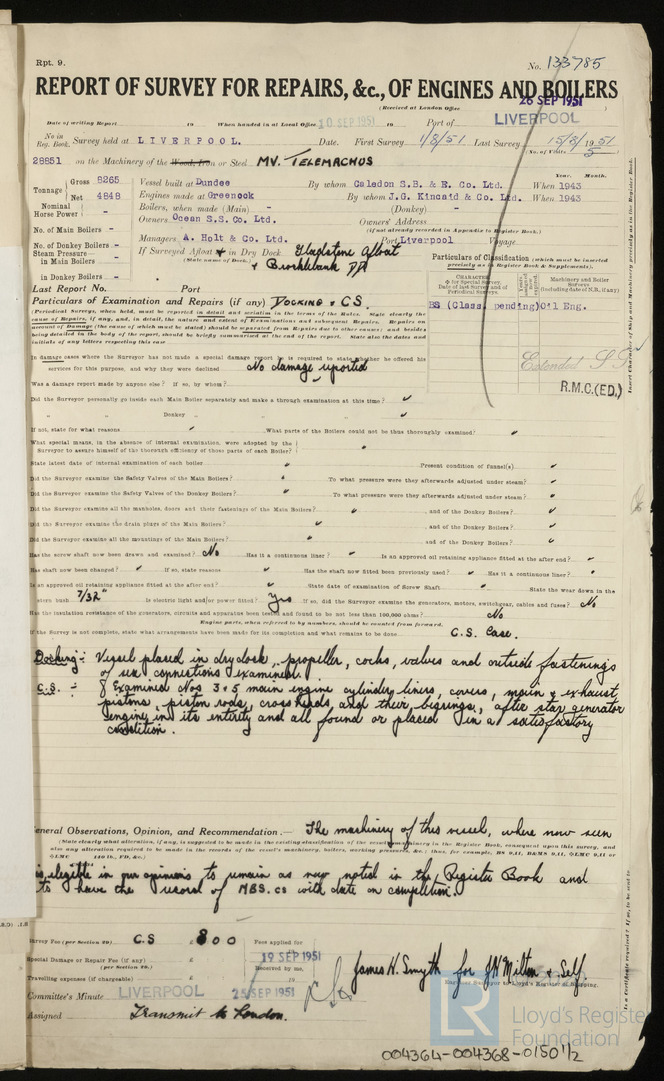 Rpt. 9.
No. 133785
REPORT OF SURVEY FOR REPAIRS, &c., OF ENGINES AND BOILERS
(Received at London Office 26 SEP 1951 )
Date of writing Report 19 When handed in at Local Office 10 SEP 1951 19 Port of LIVERPOOL
No. in Reg. Book. Survey held at LIVERPOOL. Date. First Survey 1/8/51 Last Survey 15/8/1951
(No. of Visits 5
28851 on the Machinery of the Wood, Iron or Steel MV. TELEMACHUS
Tonnage Gross 8265 Net 4848
Vessel built at Dundee By whom Caledon S.B. & E. Co. Ltd. When 1943
Engines made at Greenock By whom J.G. Kincaid & Co. Ltd. When 1943
Year. Month.
Nominal Horse Power -
Boilers, when made (Main) - (Donkey) -
No. of Main Boilers -
Owners Ocean S.S. Co. Ltd. Owners' Address
(if not already recorded in Appendix to Register Book.)
No. of Donkey Boilers -
Managers A. Holt & Co. Ltd. Port Liverpool Voyage
Steam Pressure— in Main Boilers -
If Surveyed Afloat & in Dry Dock Gladstone Afloat
(State name of Dock.) & Brocklebank DD
in Donkey Boilers -
Particulars of Classification (which must be inserted precisely as in Register Book & Supplements).
Last Report No. Port
Particulars of Examination and Repairs (if any) DOCKING & CS.
Machinery and Boiler Surveys (including date of N.B. if any)
BS (Class. pending) Oil Eng.
Extended
R.M.C.(ED.)
In damage cases where the Surveyor has not made a special damage report he is required to state whether he offered his
services for this purpose, and why they were declined No damage reported
Was a damage report made by anyone else? if so, by whom?
Did the Surveyor personally go inside each Main Boiler separately and make a thorough examination at this time?
" " Donkey " "
If not, state for what reasons What parts of the Boilers could not be thus thoroughly examined?
What special means, in the absence of internal examination, were adopted by the
Surveyor to assure himself of the thorough efficiency of those parts of each Boiler?
State latest date of internal examination of each boiler Present condition of funnel(s)
Did the Surveyor examine the Safety Valves of the Main Boilers? To what pressure were they afterwards adjusted under steam?
Did the Surveyor examine the Safety Valves of the Donkey Boilers? To what pressure were they afterwards adjusted under steam?
Did the Surveyor examine all the manholes, doors and their fastenings of the Main Boilers? and of the Donkey Boilers?
Did the Surveyor examine the drain plugs of the Main Boilers? and of the Donkey Boilers?
Did the Surveyor examine all the mountings of the Main Boilers? and of the Donkey Boilers?
Has the screw shaft now been drawn and examined? No Has it a continuous liner? Is an approved oil retaining appliance fitted at the after end?
Has shaft now been changed? If so, state reasons Has the shaft now fitted been previously used? Has it a continuous liner?
Is an approved oil retaining appliance fitted at the after end? State date of examination of Screw Shaft State the wear down in the
stern bush 7/32" Is electric light and/or power fitted? Yes If so, did the Surveyor examine the generators, motors, switchgear, cables and fuses? No
Has the insulation resistance of the generators, circuits and apparatus been tested and found to be not less than 100,000 ohms? No
Engine parts, when referred to by numbers, should be counted from forward.
If the Survey is not complete, state what arrangements have been made for its completion and what remains to be done C.S. Case.
Docking:- Vessel placed in dry dock, propeller, cocks, valves and outside fastenings
of sea connections examined.
C.S. :- Examined Nos 3 & 5 main engine cylinder liners, covers, main & exhaust
pistons, piston rods, crossheads, and their bearings, after star generator
engine in its entirety and all found or placed in a satisfactory
condition.
General Observations, Opinion, and Recommendation.— The machinery of this vessel, where now seen
is eligible in our opinions to remain as now noted in the Register Book and
to have the record of MBS. CS with date on completion.
Survey Fee (per Section 29) C.S £ 8 0 0 Fees applied for
Special Damage or Repair Fee (if any) (per Section 29) £ 19 SEP 1951
Received by me,
Travelling expenses (if chargeable) £ 19
James H. Smyth for JN Milton & Self.
Engineer Surveyor to Lloyd's Register of Shipping.
Committee's Minute LIVERPOOL 25 SEP 1951
Assigned Transmit to London.
LR
Lloyd's Register
Foundation
004364-004368-0150 1/2